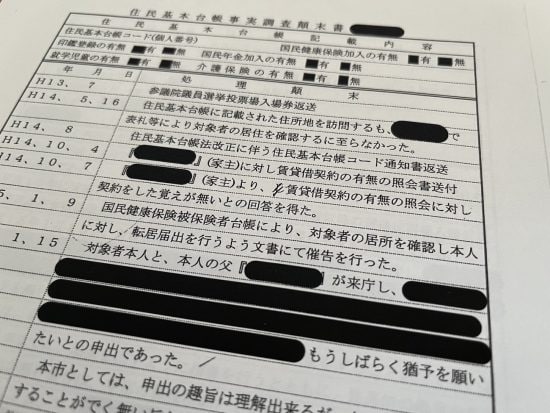 住民基本台帳事実調査顛末書
住民基本台帳記載内容
住民基本台帳コード(個人番号) 国民健康保険加入の有無 有 無
印鑑登録の有無 有 無 国民年金加入の有無 有 無
就学児童の有無 有 無 介護保険の有無 有 無
年 月 日 処理顛末
H13、7 参議院議員選挙投票場入場券返送
H14、5、16 住民基本台帳に記載された住所地を訪問するも、 で
表札等により対象者の居住を確認するに至らなかった。
H14、8 住民基本台帳法改正に伴う住民基本台帳コード通知書返送
H14、10、4 『 』(家主)に対し賃貸借契約の有無の照会書送付
H14、10、7 『 』(家主)より、賃貸借契約の有無の照会に対し
契約をした覚えが無いとの回答を得た。
5、1、9 国民健康保険被保険者台帳により、対象者の居所を確認し本人
に対し、転居届出を行うよう文書にて催告を行った。
1、15 対象者本人と、本人の父『 』が来庁し、
もうしばらく猶予を願い
たいとの申出であった。
本市としては、申出の趣旨は理解出来るが
することがで